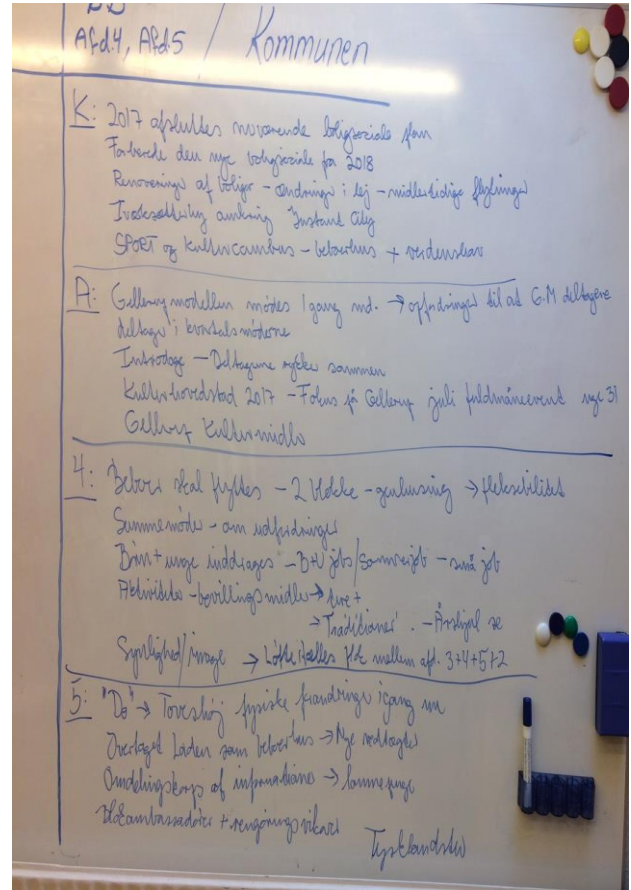 Afd.4, Afd.5 / Kommunen
K: 2017 afsluttes nuværende boligsociale plan
Forberede den nye boligsociale for 2018
Renoveringer af boliger - ændringer i lej - midlertidige flytninger
Iværksætterby omkring Instant City
SPORT og Kulturcampus - beboerhus + verdenshav
A: Gellerup modellen mødes 1 gang md. → opfordringer til at G.M deltagene
deltage i kvartalsmøderne
Introdage - Deltagerne rykker sammen
Kulturhovedstad 2017 - Fokus på Gellerup juli fuldmåneevent uge 31
Gellerup Kulturmidler
4: Beboer skal flyttes - 2 blokke - genhusing → fleksibilitet
Sammemøde - om udfordringer
Børn + unge inddrages - B+U jobs/ - små job
Aktiviteter - bevillings midler →
→ Traditioner. - Årshjul
Synlighed/image → mellem afd. 3+4+5+2
5: "Do" → Toveshøj fysiske forandringer igang nu
Overtaget Laden som beboerhus → Nye vedtægter
Omdelingskorps af informationer → lommepenge
Blokambassadører + rengøringsvikarer
Tysklandstur